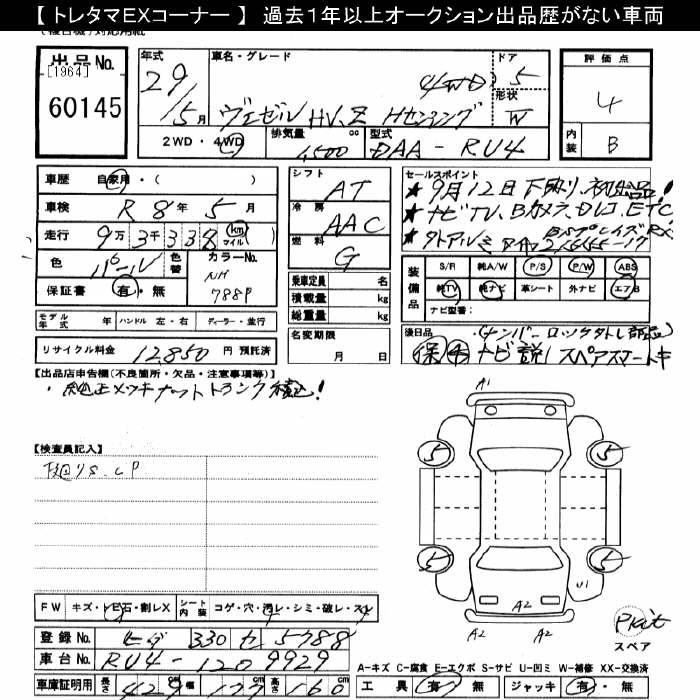 【 トレタマEXコーナー 】 過去1年以上オークション出品歴がない車両
出品No.
[1964]
60145
年式
29/5月
車名・グレード
4WD
ヴェゼル HV.Z Hセンシング
ドア
5
形状
W
2WD・4WD
排気量
1500
cc
型式
DAA-RU4
評価点
4
内装
B
車歴
自家用・( )
車検
R 8年 5月
走行
9万 3千 338 (km マイル)
色
パール
色替
カラーNo.
NH
788P
保証書
有・無
シフト
AT
冷房
AAC
燃料
G
乗車定員 名
積載量 kg
総重量 kg
名変期限
月 日
セールスポイント
★ 9月12日 下取り、初出品!
★ ナビTV、Bカメラ、Dレコ、ETC
装備品
S/R 純A/W P/S P/W ABS
純TV 純ナビ 革シート 外ナビ エアB
ナビ型番:
モデル年式 年 ハンドル 左・右 ディーラー・並行
リサイクル料金 12,850 円 預託済
後日品
保 ナビ説 スペアスマートキ
【出品店申告欄(不良箇所・欠品・注意事項等)】
【検査員記入】
FW キズ・石・割レX
シート内装 コゲ・穴・汚レ・シミ・破レ・スレ
登録No. 330 セ 5788
車台No. RU4-1209929
車庫証明用 長さ 429 cm 幅 177 cm 高さ 160 cm
A1
5
5
5
5
U1
A2
A2
A2
スペア
A-キズ C-腐食 E-エクボ S-サビ U-凹ミ W-補修 XX-交換済
工具 有・無 ジャッキ 有・無